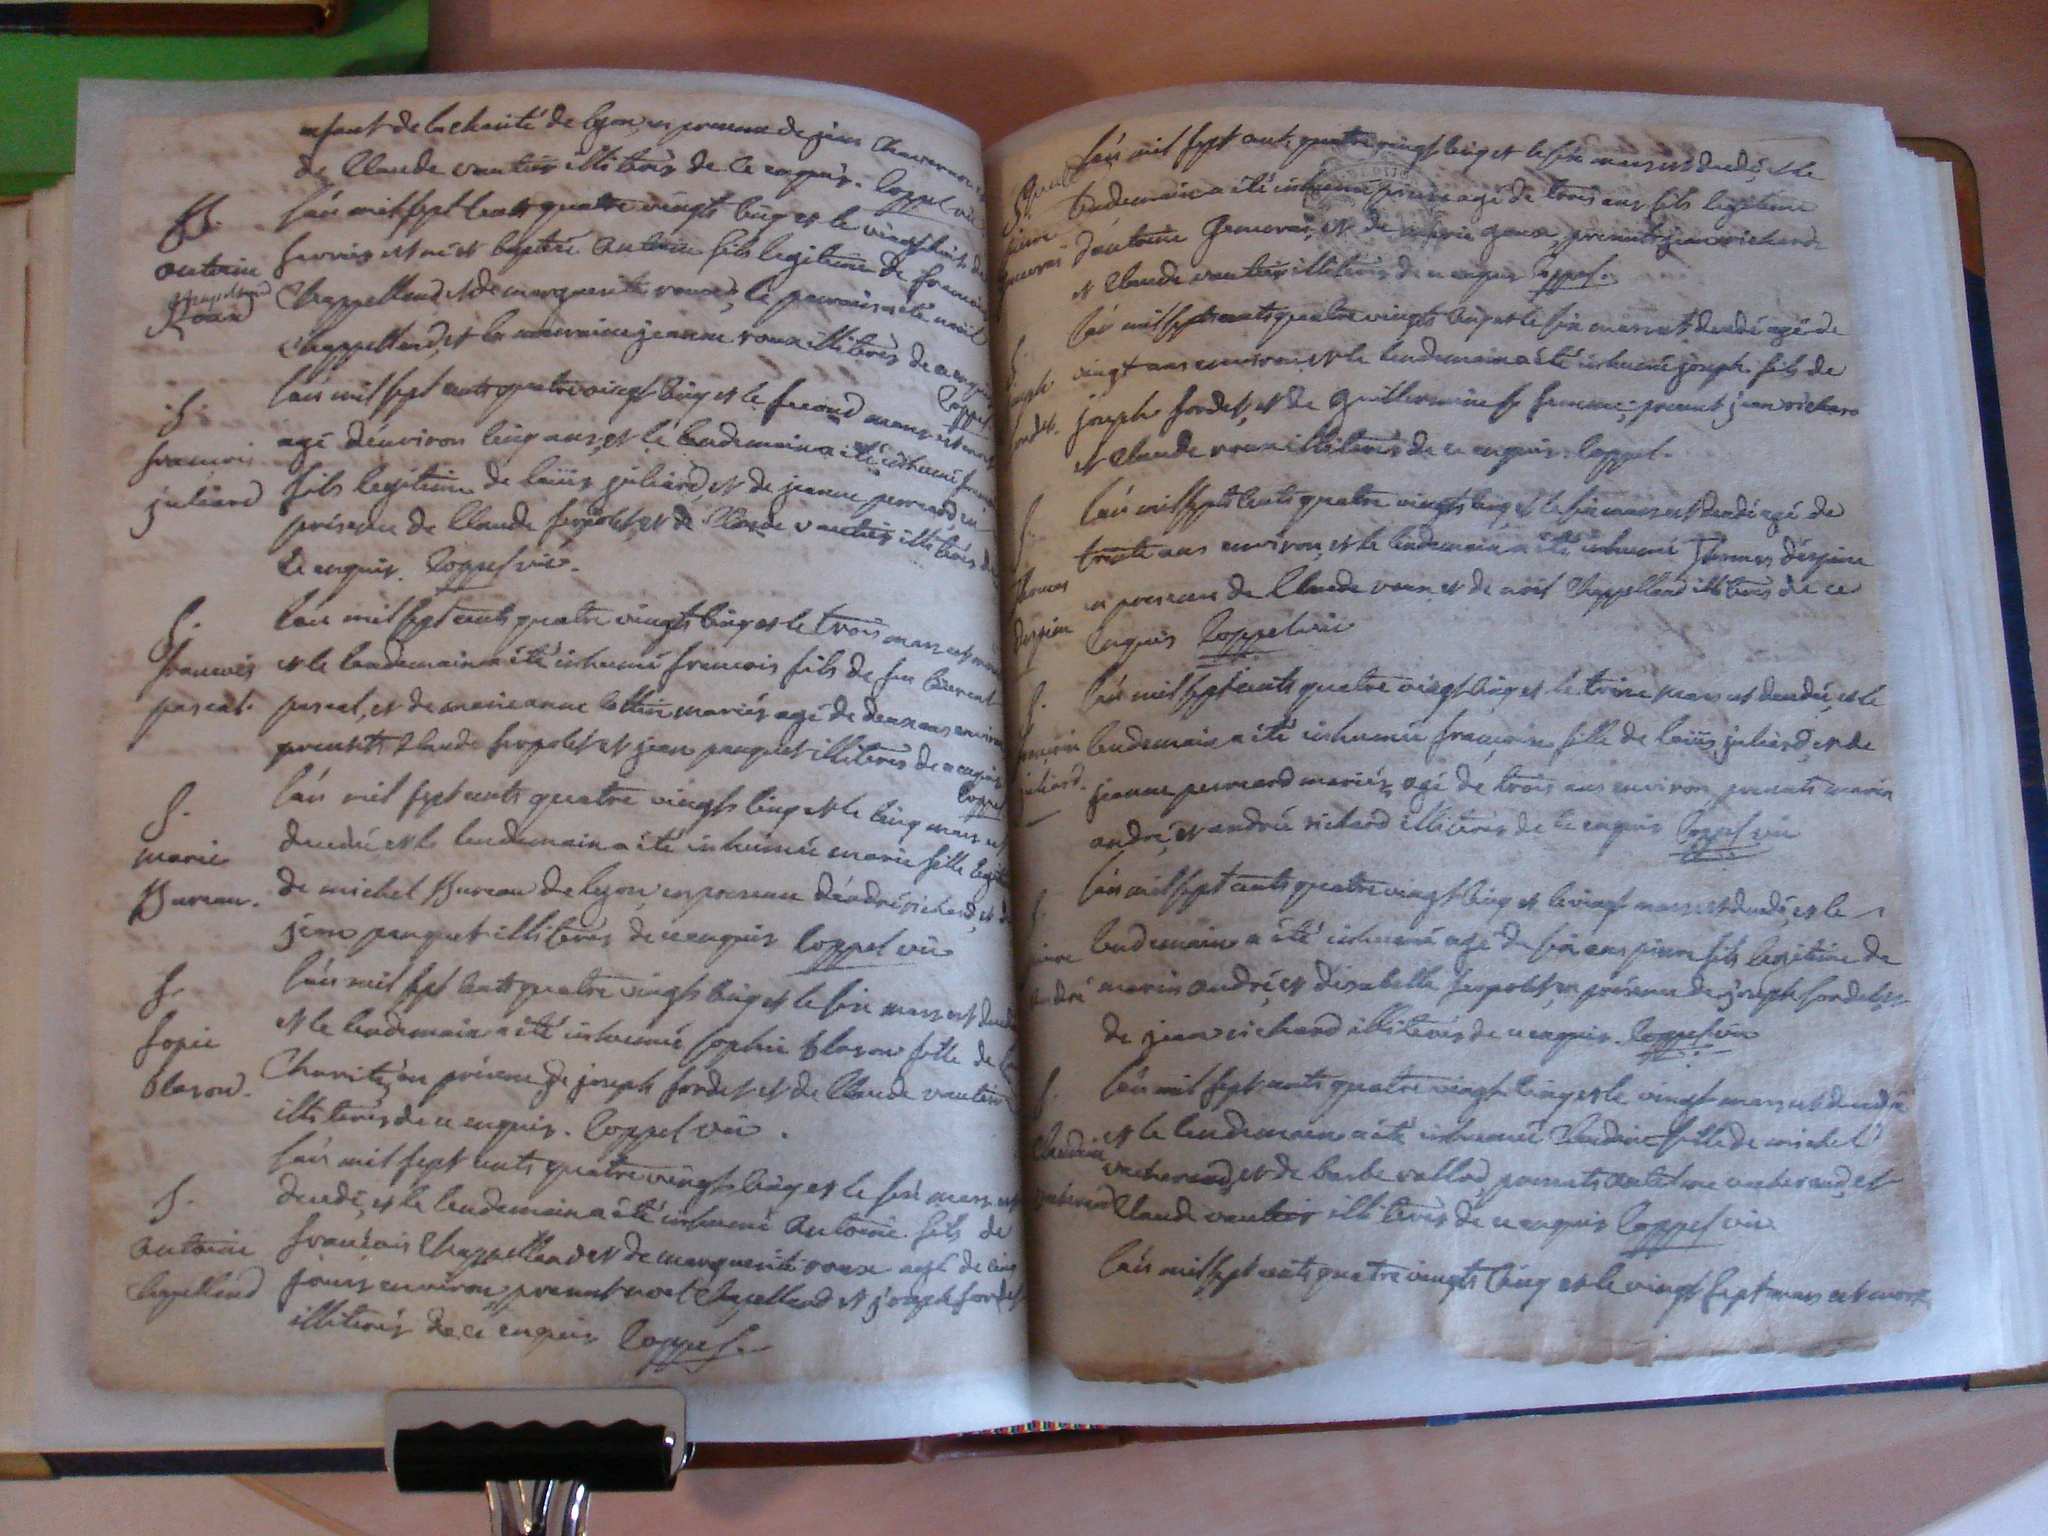 enfant de la charité de lyon, en presence de jean
de Claude vautier illiterés de ce enquis. Coppel vic
B.
antoine
chapelland
Roux
l'an mil sept cents quatre vingts cinq et le vingt huit de
fevrier est né et baptisé antoine fils legitime de francois
Chappelland, et de marguerite roux, le parrain a été noel
chappelland, et la marraine jeanne roux illiterés de ce enquis
Coppel
S.
francois
juliard
l'an mil sept cents quatre vingt cinq et le second mars est mort
agé d'environ cinq ans, et le lendemain a été inhumé francois
fils legitime de loüis juliard et de jeanne perrard, en
présence de Claude serpolet, et de Claude vautier illiterés de
ce enquis. Coppel vic.
S.
francois
pascal.
l'an mil sept cents quatre vingts cinq et le trois mars est mort
et le lendemain a été inhumé francois fils de feu laurent
pascal, et de marie anne mariés agé de deux ans environ
presents Claude serpolet et jean panquet illiterés de ce enquis
Coppel
S.
marie
Bureau.
l'an mil sept cents quatre vingts cinq et le cinq mars est
decedé et le lendemain a été inhumée marie fille legitime
de michel Bureau de lyon, en presence d'andré richard, et de
jean panquet illiterés de ce enquis Coppel vic
S.
sopie
blason.
l'an mil sept cents quatre vingts cinq et le six mars est decedé
et le lendemain a été inhumée sophie blason fille de la
Charité, en présence de joseph fordet et de Claude vautier
illiterés de ce enquis. Coppel vic.
S.
antoine
Chapelland
l'an mil sept cents quatre vingts cinq et le six mars est
decedé, et le lendemain a été inhumé antoine fils de
francois Chappelland et de marguerite roux agé de cinq
jours environ present noel Chapelland et joseph fordet
illiterés de ce enquis Coppel.
S.
pierre
l'an mil sept cents quatre vingt cinq et le six mars est decedé, et le
lendemain a été inhumé pierre agé de trois ans fils legitime
d'antoine et de marie presents jean richard
et Claude vautier illiterés de ce enquis Coppel.
S.
joseph
fordet.
l'an mil sept cents quatre vingts cinq et le six mars est decedé agé de
vingt ans environ, et le lendemain a été inhumé joseph fils de
joseph fordet, et de Guillermine sa femme, present jean richard
et Claude roux illiterés de ce enquis. Coppel.
S.
thomas
despine
l'an mil sept cents quatre vingts cinq et le six mars est decedé agé de
trente ans environ, et le lendemain a été inhumé thomas despine
en presence de Claude roux et de noel Chappelland illiterés de ce
enquis Coppel vic
S.
francoise
juliard.
l'an mil sept cents quatre vingt cinq et le treize mars est decedé, et le
lendemain a été inhumée francoise fille de loüis juliard, et de
jeanne perrard mariés, agé de trois ans environ presents marin
andré, et andré richard illiterés de ce enquis Coppel vic
S.
pierre
andré
l'an mil sept cents quatre vingt cinq et le vingt mars est decedé, et le
lendemain a été inhumé agé de six ans pierre fils legitime de
marin andré, et d'isabelle serpolet, en présence de joseph fordet, et
de jean richard illiterés de ce enquis. Coppel vic
S.
Claudine
vacherand
l'an mil sept cents quatre vingt cinq et le vingt mars est decedé
et le lendemain a été inhumée Claudine fille de michel
vacherand, et de barbe vallod, presents antoine vacherand, et
Claude vautier illiterés de ce enquis Coppel vic
l'an mil sept cents quatre vingts cinq et le vingt sept mars est mort